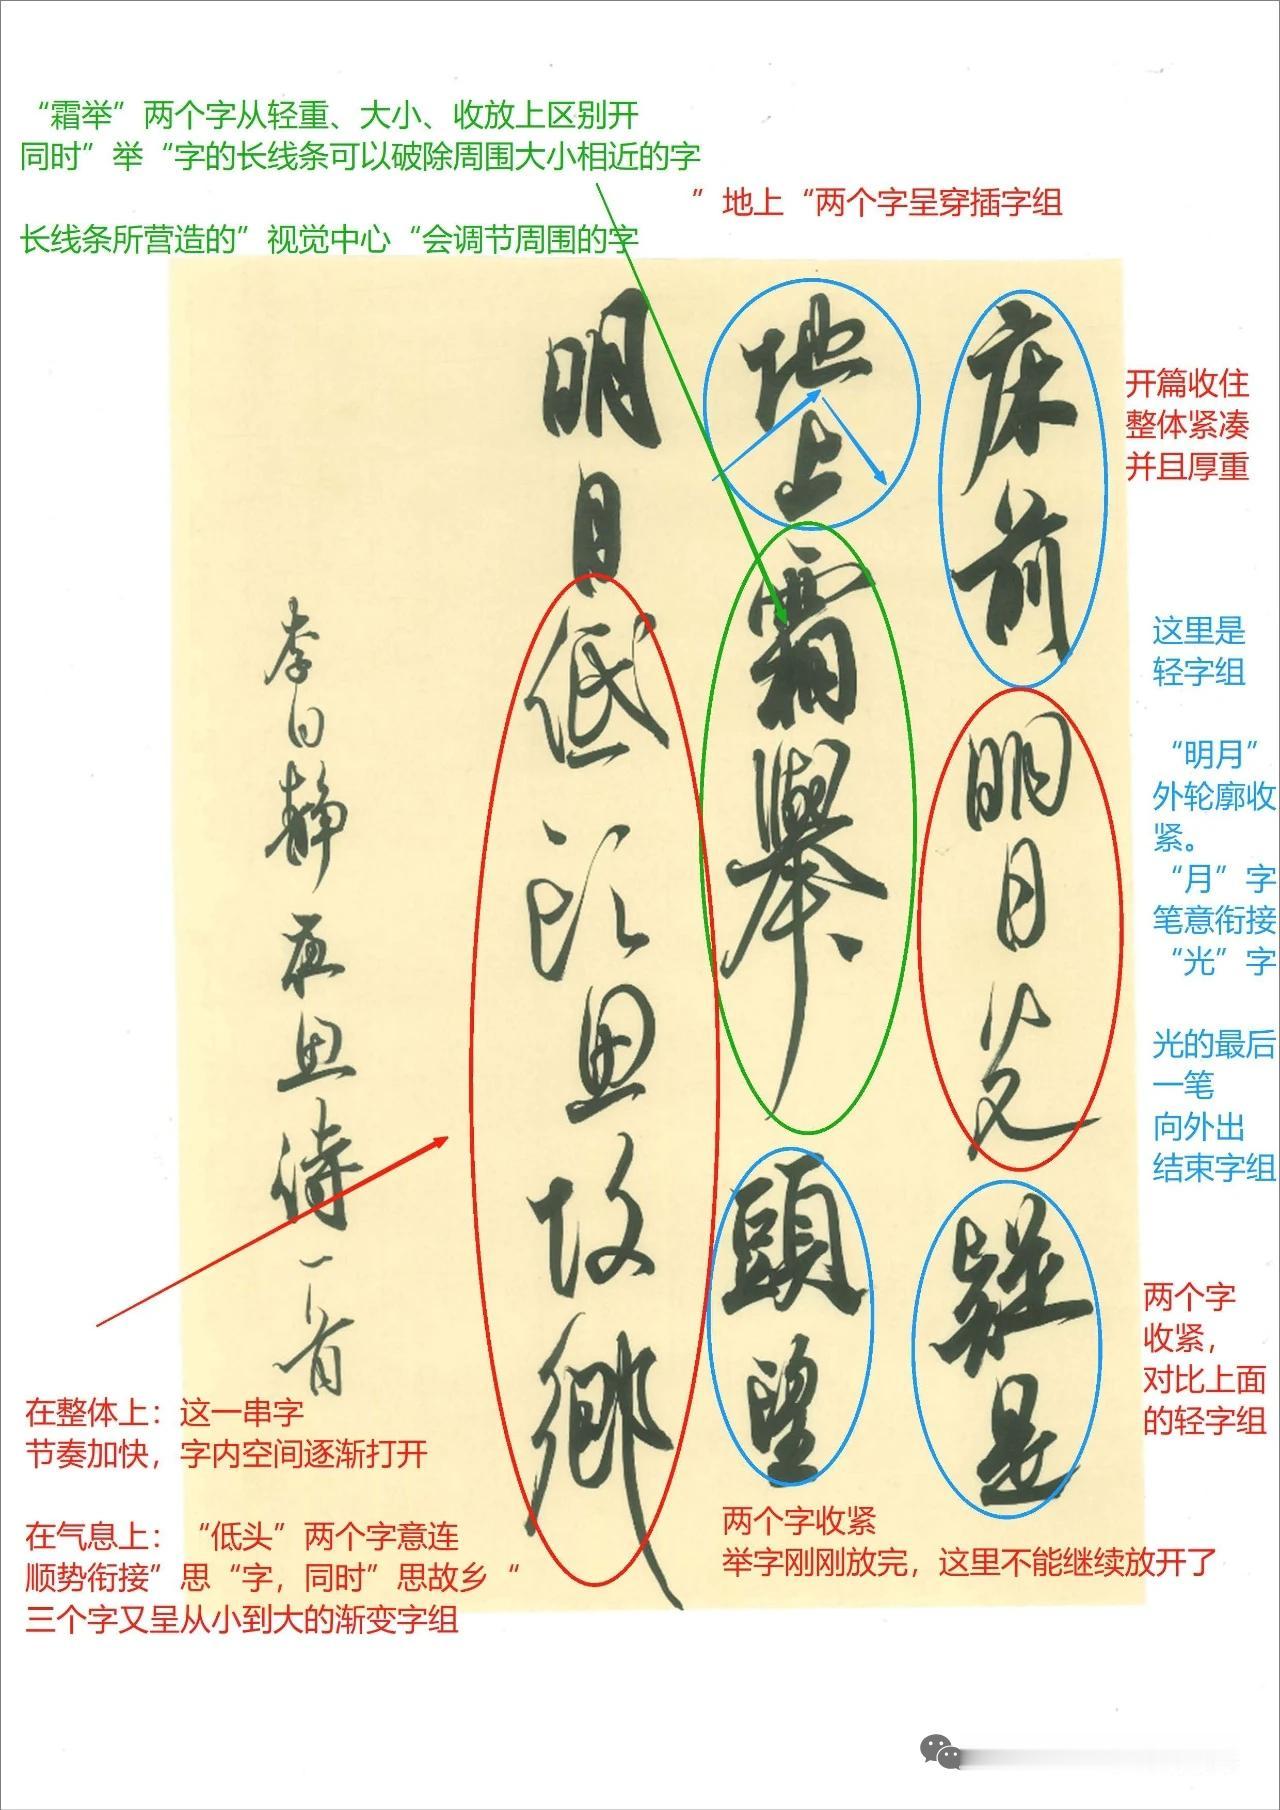 “霜举”两个字从轻重、大小、收放上区别开
同时”举“字的长线条可以破除周围大小相近的字
长线条所营造的”视觉中心“会调节周围的字
”地上“两个字呈穿插字组
床前明月光疑是
地上霜舉頭望
明月低头思故鄉
李白静夜思诗一首
开篇收住
整体紧凑
并且厚重
这里是
轻字组
“明月”
外轮廓收
紧。
“月”字
笔意衔接
“光”字
光的最后
一笔
向外出
结束字组
两个字
收紧，
对比上面
的轻字组
在整体上：这一串字
节奏加快，字内空间逐渐打开
在气息上：“低头”两个字意连
顺势衔接”思“字，同时”思故乡“
三个字又呈从小到大的渐变字组
两个字收紧
举字刚刚放完，这里不能继续放开了